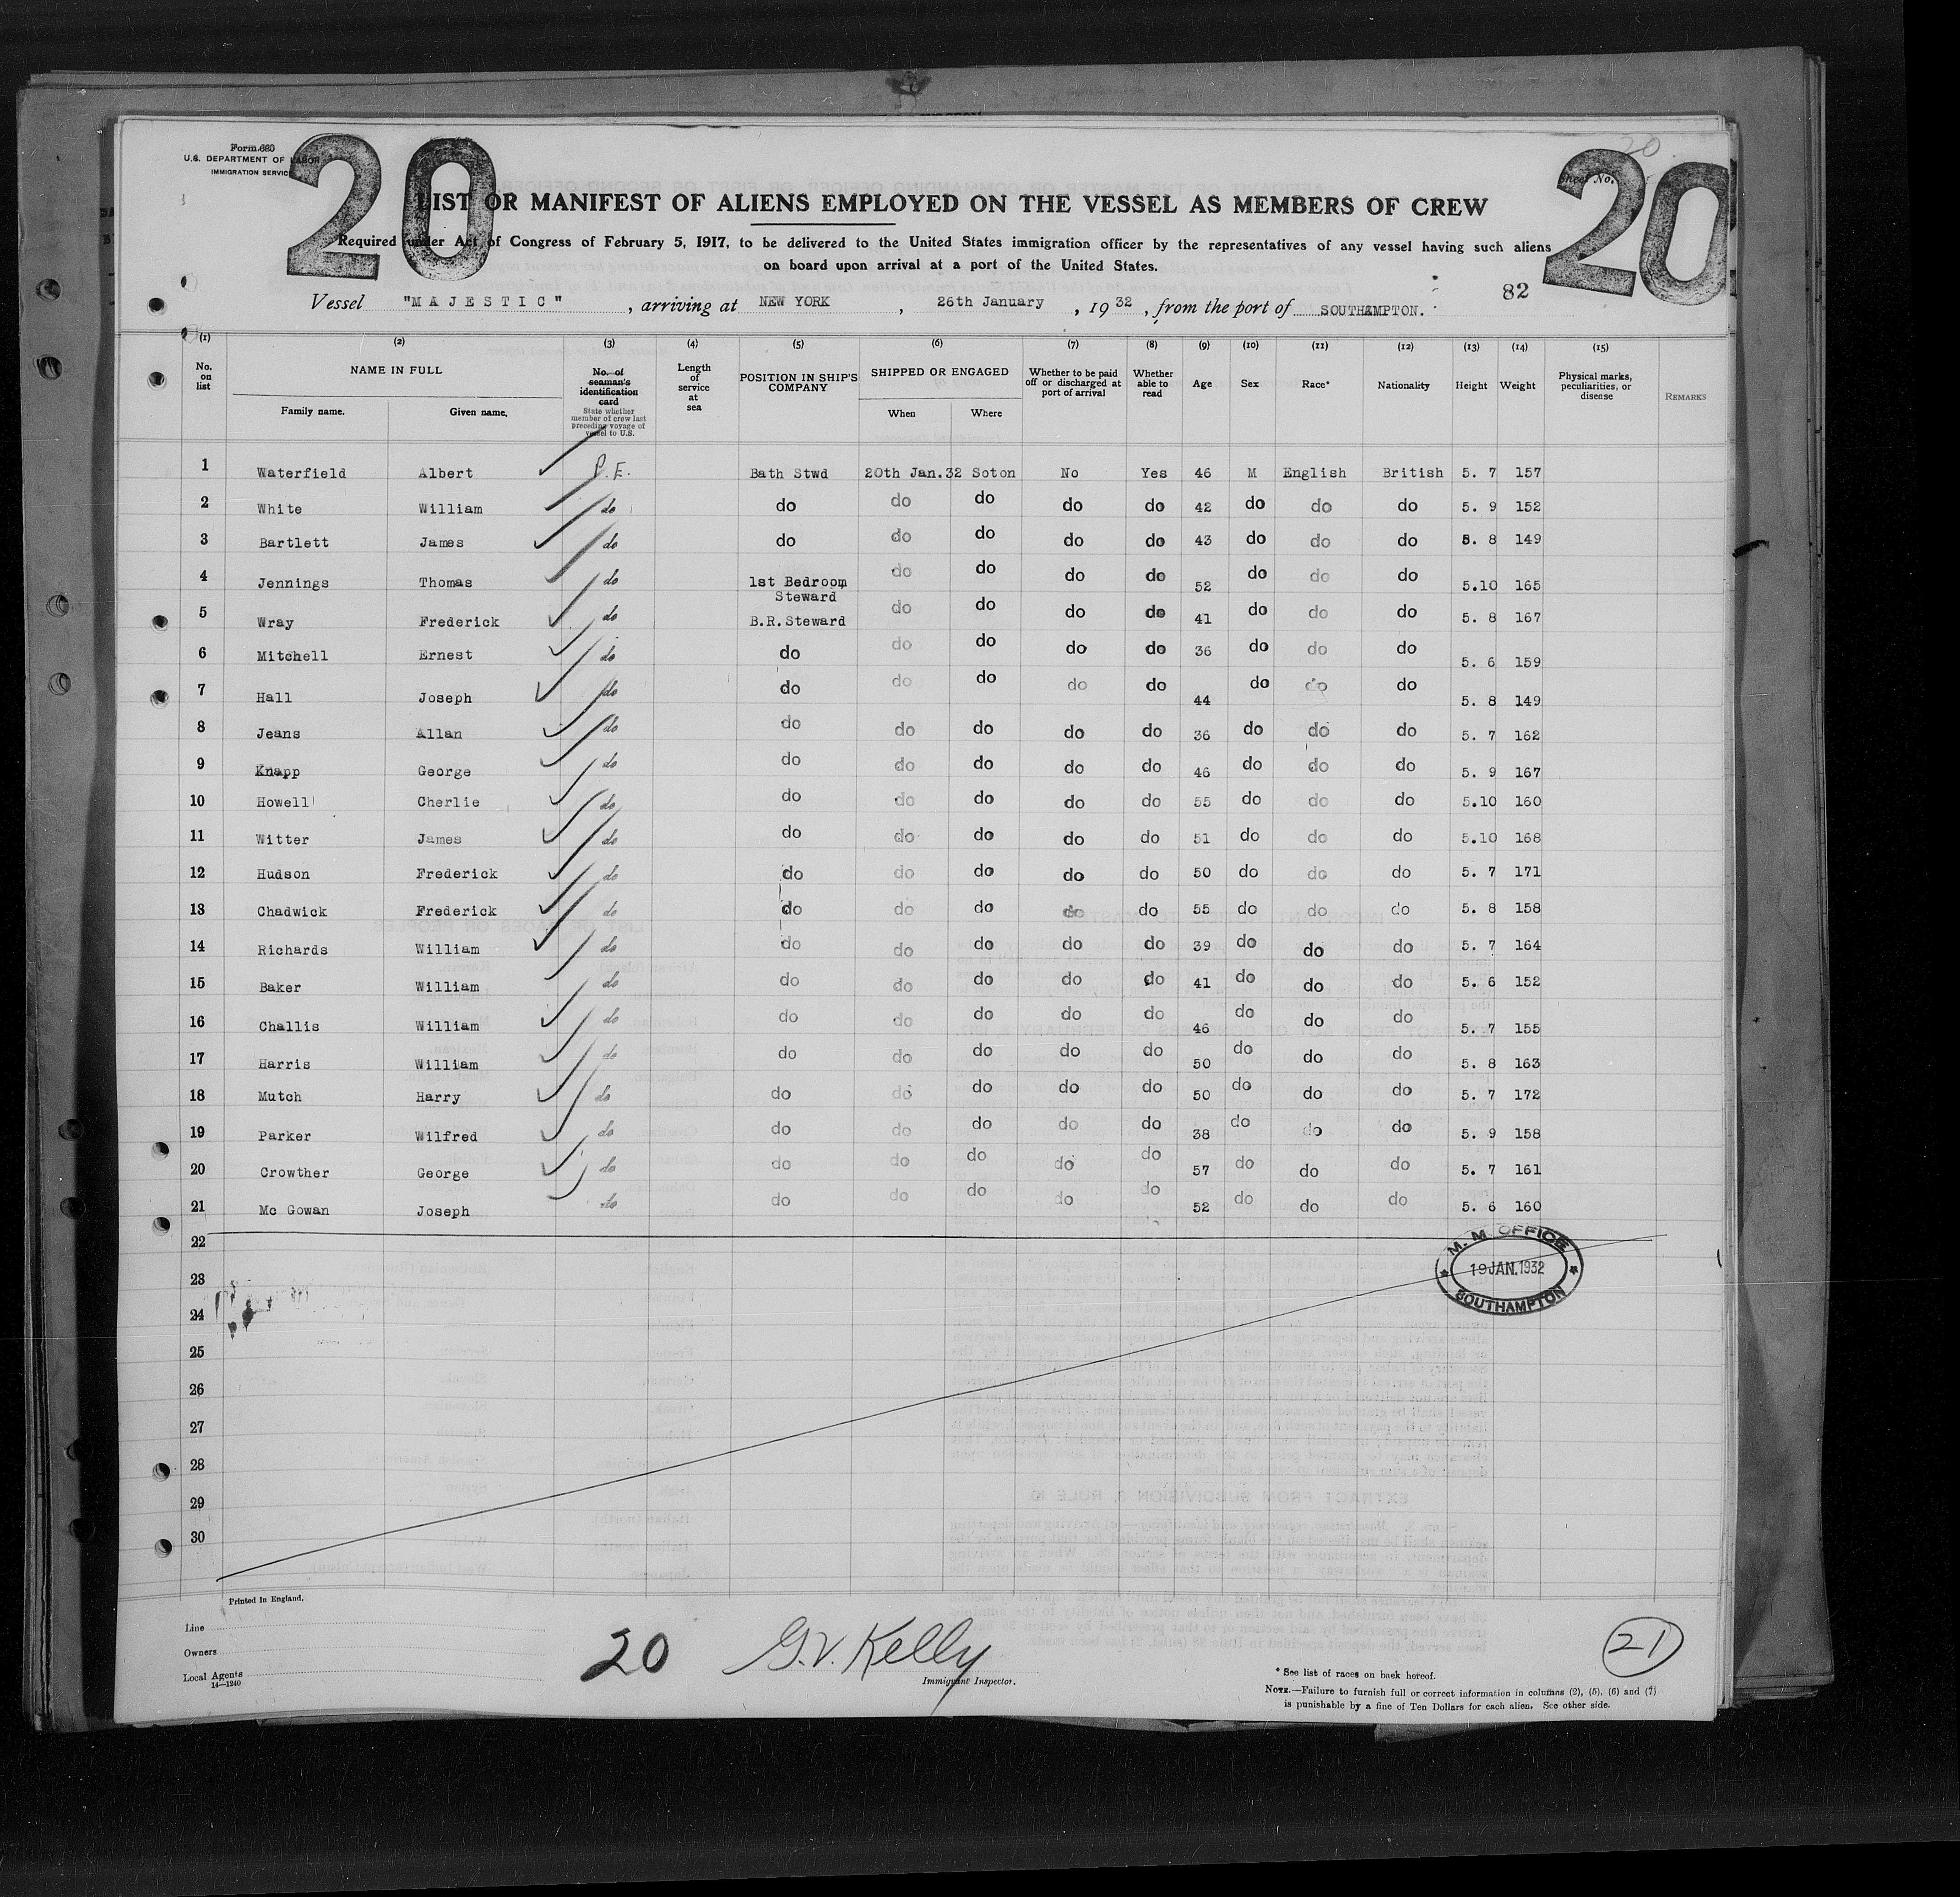 Form 680
U.S. DEPARTMENT OF LABOR
IMMIGRATION SERVICE
20
20
20
Sheet No.
LIST OR MANIFEST OF ALIENS EMPLOYED ON THE VESSEL AS MEMBERS OF CREW
Required under Act of Congress of February 5, 1917, to be delivered to the United States immigration officer by the representatives of any vessel having such aliens
on board upon arrival at a port of the United States.
82
Vessel "MAJESTIC", arriving at NEW YORK, 26th January, 1932, from the port of SOUTHAMPTON.
(1) (2) (3) (4) (5) (6) (7) (8) (9) (10) (11) (12) (13) (14) (15)
No. on list
NAME IN FULL
Family name. Given name.
No. of seaman's identification card
State whether member of crew last preceding voyage of vessel to U.S.
Length of service at sea
POSITION IN SHIP'S COMPANY
SHIPPED OR ENGAGED
When Where
Whether to be paid off or discharged at port of arrival
Whether able to read
Age
Sex
Race*
Nationality
Height
Weight
Physical marks, peculiarities, or disease
REMARKS
1 Waterfield Albert P.E. Bath Stwd 20th Jan.32 Soton No Yes 46 M English British 5. 7 157
2 White William do do do do do do 42 do do do 5. 9 152
3 Bartlett James do do do do do do 43 do do do 5. 8 149
4 Jennings Thomas do 1st Bedroom Steward do do do do 52 do do do 5.10 165
5 Wray Frederick do B.R.Steward do do do do 41 do do do 5. 8 167
6 Mitchell Ernest do do do do do do 36 do do do 5. 6 159
7 Hall Joseph do do do do do do 44 do do do 5. 8 149
8 Jeans Allan do do do do do do 36 do do do 5. 7 162
9 Knapp George do do do do do do 46 do do do 5. 9 167
10 Howell Cherlie do do do do do do 55 do do do 5.10 160
11 Witter James do do do do do do 51 do do do 5.10 168
12 Hudson Frederick do do do do do do 50 do do do 5. 7 171
13 Chadwick Frederick do do do do do do 55 do do do 5. 8 158
14 Richards William do do do do do do 39 do do do 5. 7 164
15 Baker William do do do do do do 41 do do do 5. 6 152
16 Challis William do do do do do do 46 do do do 5. 7 155
17 Harris William do do do do do do 50 do do do 5. 8 163
18 Mutch Harry do do do do do do 50 do do do 5. 7 172
19 Parker Wilfred do do do do do do 38 do do do 5. 9 158
20 Crowther George do do do do do do 57 do do do 5. 7 161
21 Mc Gowan Joseph do do do do do do 52 do do do 5. 6 160
22
23
24
25
26
27
28
29
30
M. M. OFFICE
19 JAN. 1932
SOUTHAMPTON
Printed in England.
Line
Owners
Local Agents
14—1240
20
G.V. Kelly
Immigrant Inspector.
21
* See list of races on back hereof.
NOTE.—Failure to furnish full or correct information in columns (2), (5), (6) and (7)
is punishable by a fine of Ten Dollars for each alien. See other side.